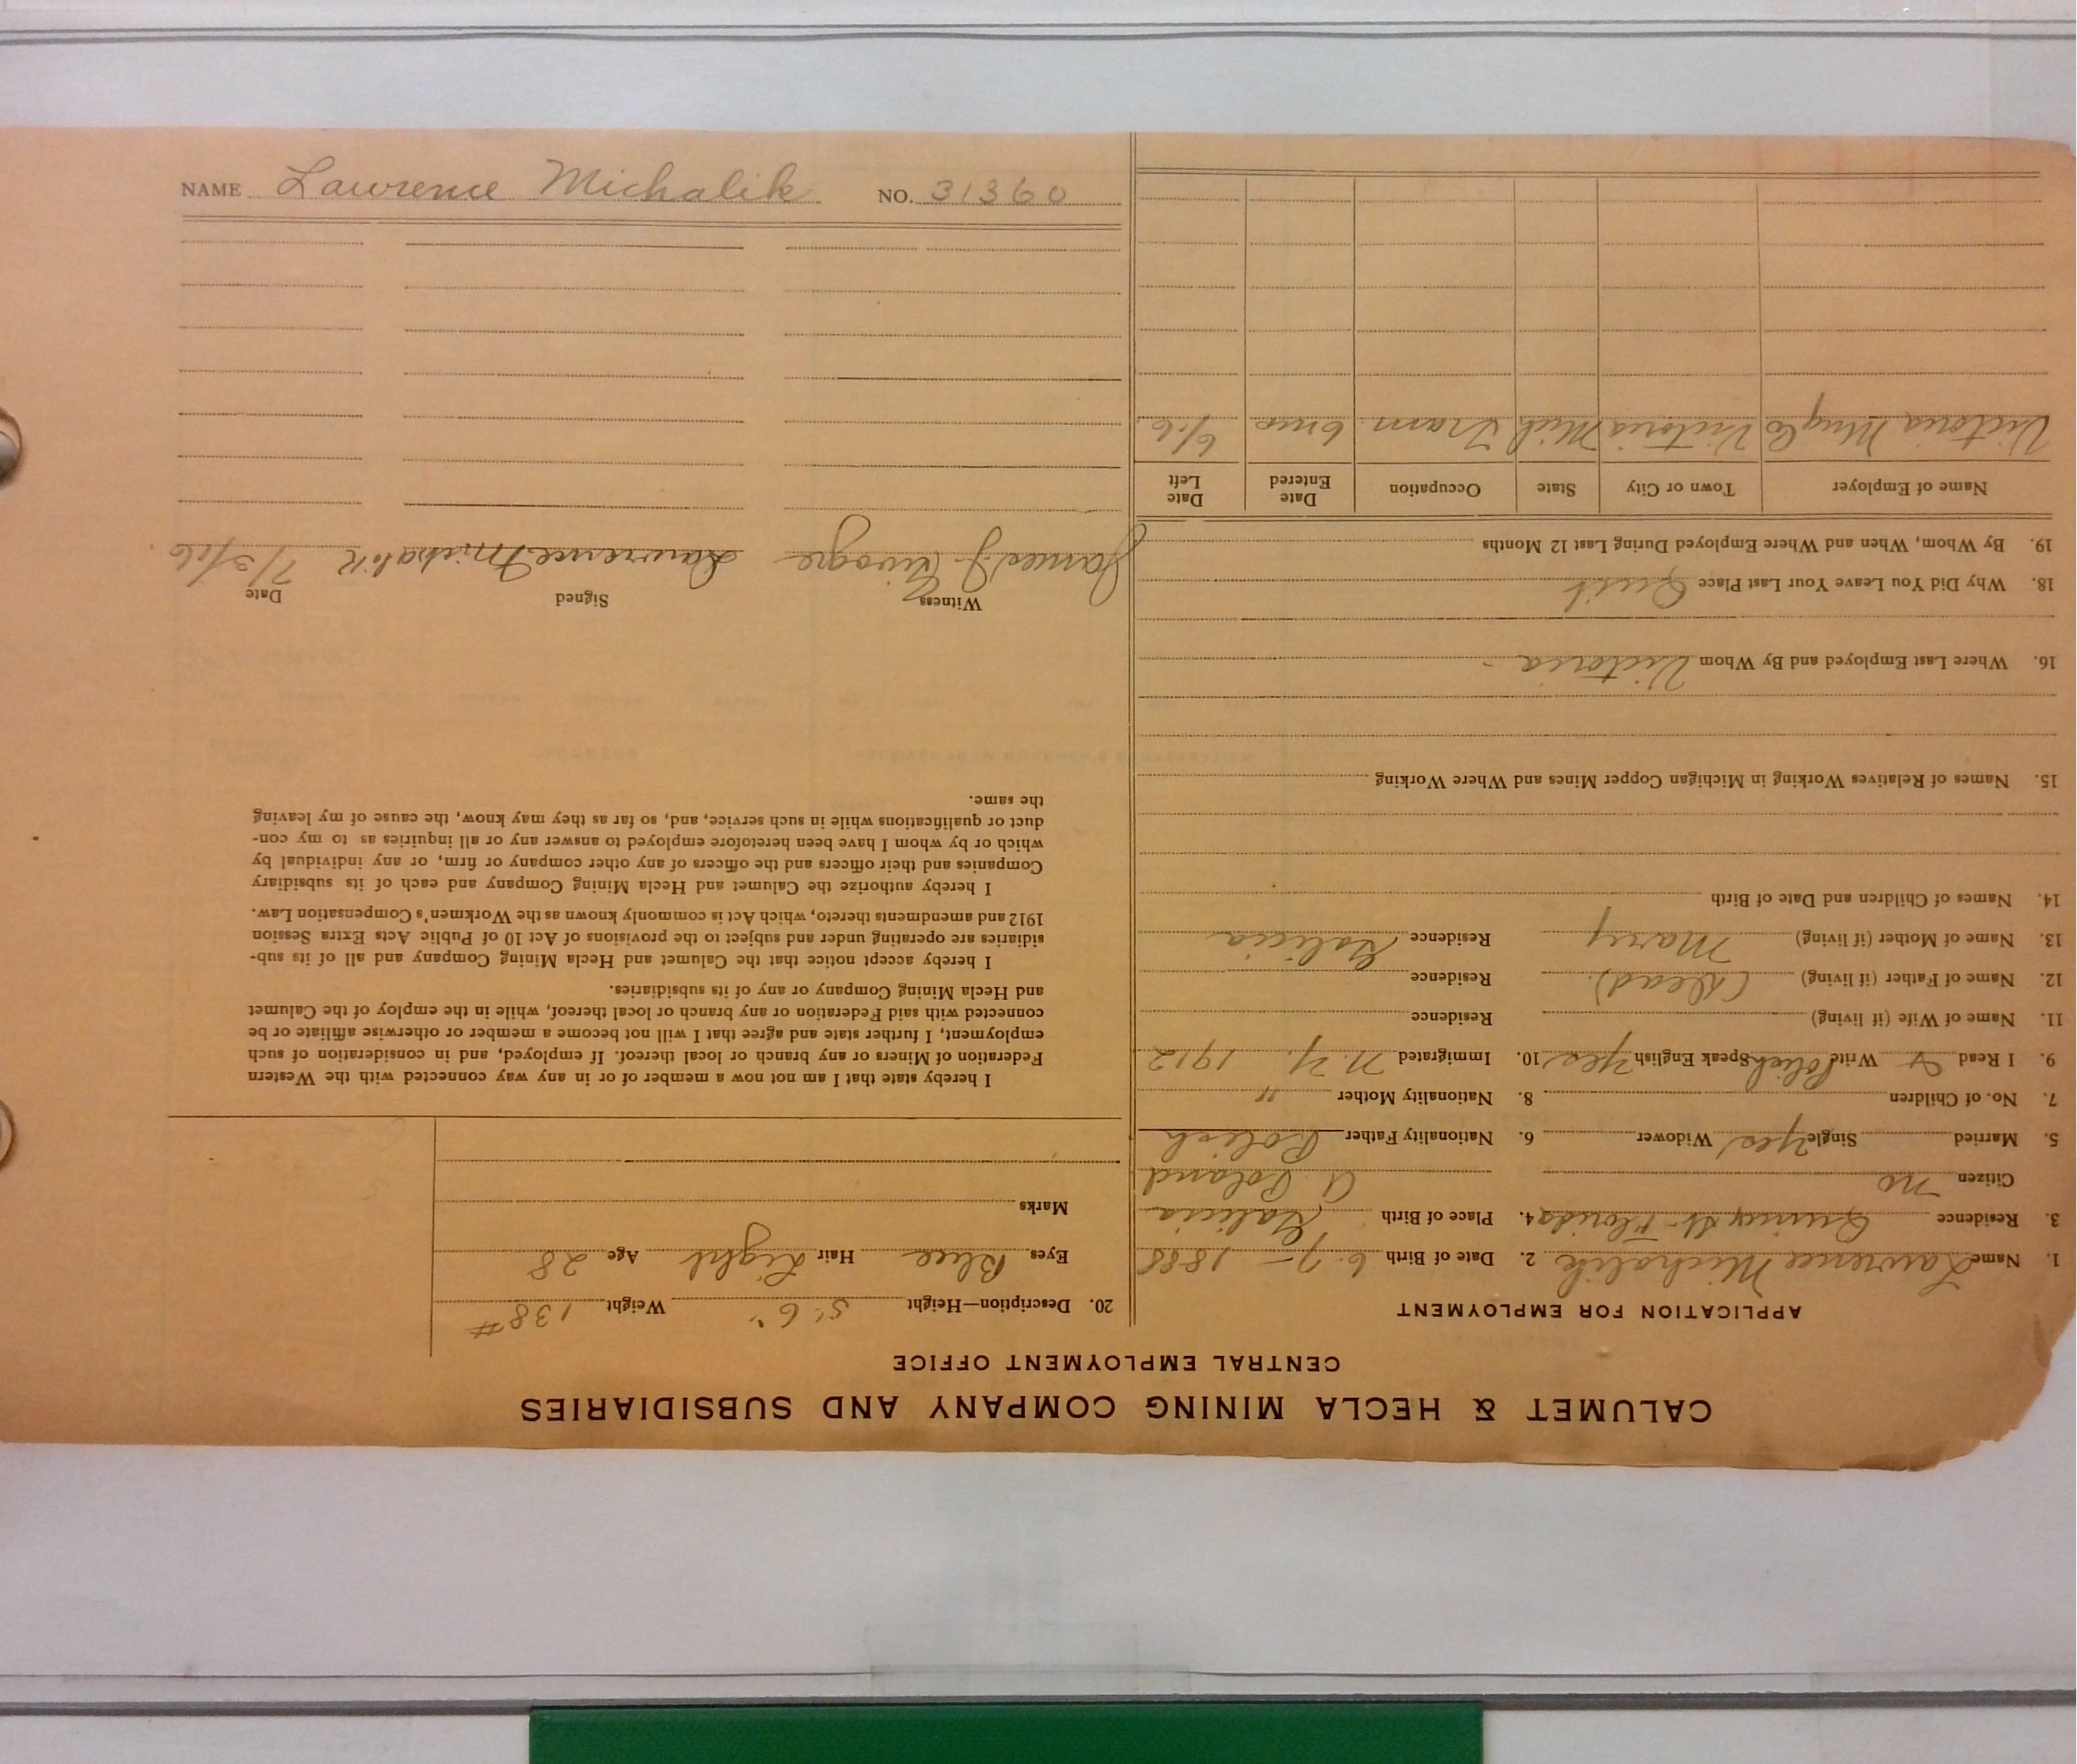 NAME Lawrence Michalik NO. 31360
CALUMET & HECLA MINING COMPANY AND SUBSIDIARIES
CENTRAL EMPLOYMENT OFFICE
APPLICATION FOR EMPLOYMENT
1. Name Lawrence Michalik 2. Date of Birth 6-7-1888
3. Residence Quincy St- Florida 4. Place of Birth Galicia
Citizen no A Poland
5. Married Single Yes Widower 6. Nationality Father Polish
7. No. of Children 8. Nationality Mother "
9. I Read & Write Polish Speak English Yes 10. Immigrated N.Y. 1912
11. Name of Wife (if living) Residence
12. Name of Father (if living) (Dead) Residence
13. Name of Mother (if living) Mary Residence Galicia
14. Names of Children and Date of Birth
15. Names of Relatives Working in Michigan Copper Mines and Where Working
16. Where Last Employed and By Whom Victoria -
18. Why Did You Leave Your Last Place Quit
19. By Whom, When and Where Employed During Last 12 Months
Name of Employer Town or City State Occupation Date Entered Date Left
Victoria Mng Co Victoria Mich Tram 6 mos 6/16
20. Description—Height 5' 6" Weight 138#
Eyes Blue Hair Light Age 28
Marks
I hereby state that I am not now a member of or in any way connected with the Western
Federation of Miners or any branch or local thereof. If employed, and in consideration of such
employment, I further state and agree that I will not become a member or otherwise affiliate or be
connected with said Federation or any branch or local thereof, while in the employ of the Calumet
and Hecla Mining Company or any of its subsidiaries.
I hereby accept notice that the Calumet and Hecla Mining Company and all of its sub-
sidiaries are operating under and subject to the provisions of Act 10 of Public Acts Extra Session
1912 and amendments thereto, which Act is commonly known as the Workmen's Compensation Law.
I hereby authorize the Calumet and Hecla Mining Company and each of its subsidiary
Companies and their officers and the officers of any other company or firm, or any individual by
which or by whom I have been heretofore employed to answer any or all inquiries as to my con-
duct or qualifications while in such service, and, so far as they may know, the cause of my leaving
the same.
Witness Signed Date
James J. Lawrence Michalik 7/3/16